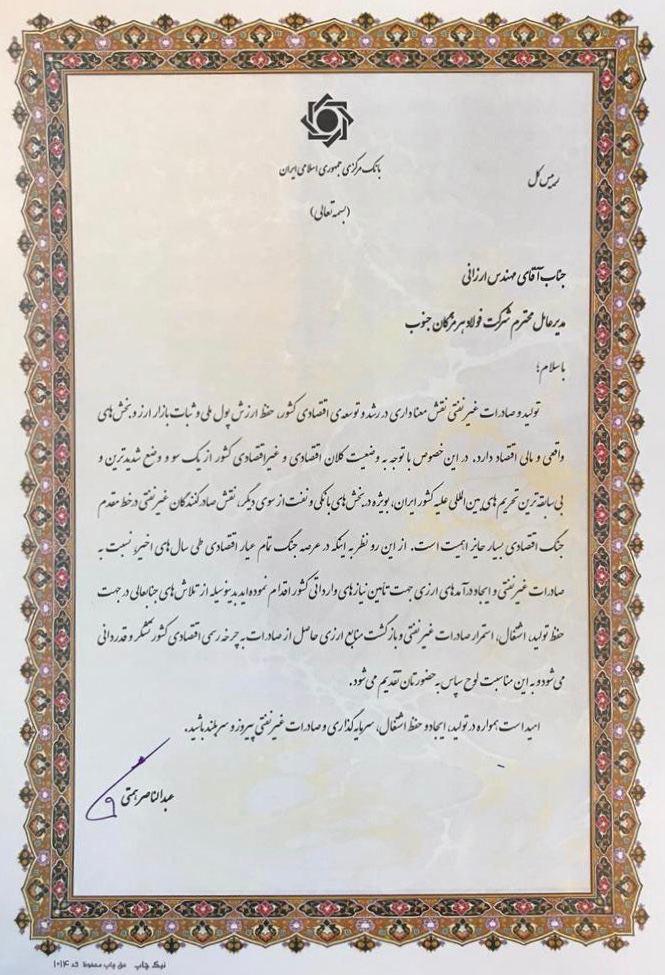 بانک مرکزی جمهوری اسلامی ایران
رییس کل
(بسمه تعالی)
جناب آقای مهندس ارزانی
مدیرعامل محترم شرکت فولاد هرمزگان جنوب
باسلام؛
تولید و صادرات غیرنفتی نقش معناداری در رشد و توسعه‌ی اقتصادی کشور، حفظ ارزش پول ملی و ثبات بازار ارز و بخش‌های
واقعی و مالی اقتصاد دارد. در این خصوص با توجه به وضعیت کلان اقتصادی و غیراقتصادی کشور از یک سو و وضع شدیدترین و
بی‌سابقه‌ترین تحریم‌های بین‌المللی علیه کشور ایران، بویژه در بخش‌های بانکی و نفت از سوی دیگر، نقش صادرکنندگان غیرنفتی در خط مقدم
جنگ اقتصادی بسیار حایز اهمیت است. از این رو نظر به اینکه در عرصه جنگ تمام عیار اقتصادی طی سال‌های اخیر، نسبت به
صادرات غیرنفتی و ایجاد درآمدهای ارزی جهت تأمین نیازهای وارداتی کشور اقدام نموده‌اید بدینوسیله از تلاش‌های جنابعالی در جهت
حفظ تولید، اشتغال، استمرار صادرات غیرنفتی و بازگشت منابع ارزی حاصل از صادرات به چرخه رسمی اقتصادی کشور تشکر و قدردانی
می‌شود و به این مناسبت لوح سپاس به حضورتان تقدیم می‌شود.
امید است همواره در تولید، ایجاد و حفظ اشتغال، سرمایه‌گذاری و صادرات غیرنفتی پیروز و سربلند باشید.
عبدالناصر همتی
نیک چاپ حق چاپ محفوظ کد ۱۰۱۴